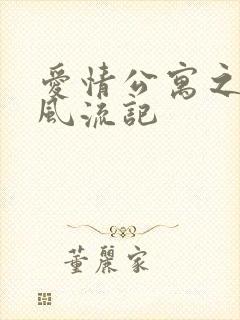 愛情公寓之
風流記
董麗家